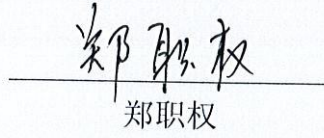 郑职权
郑职权